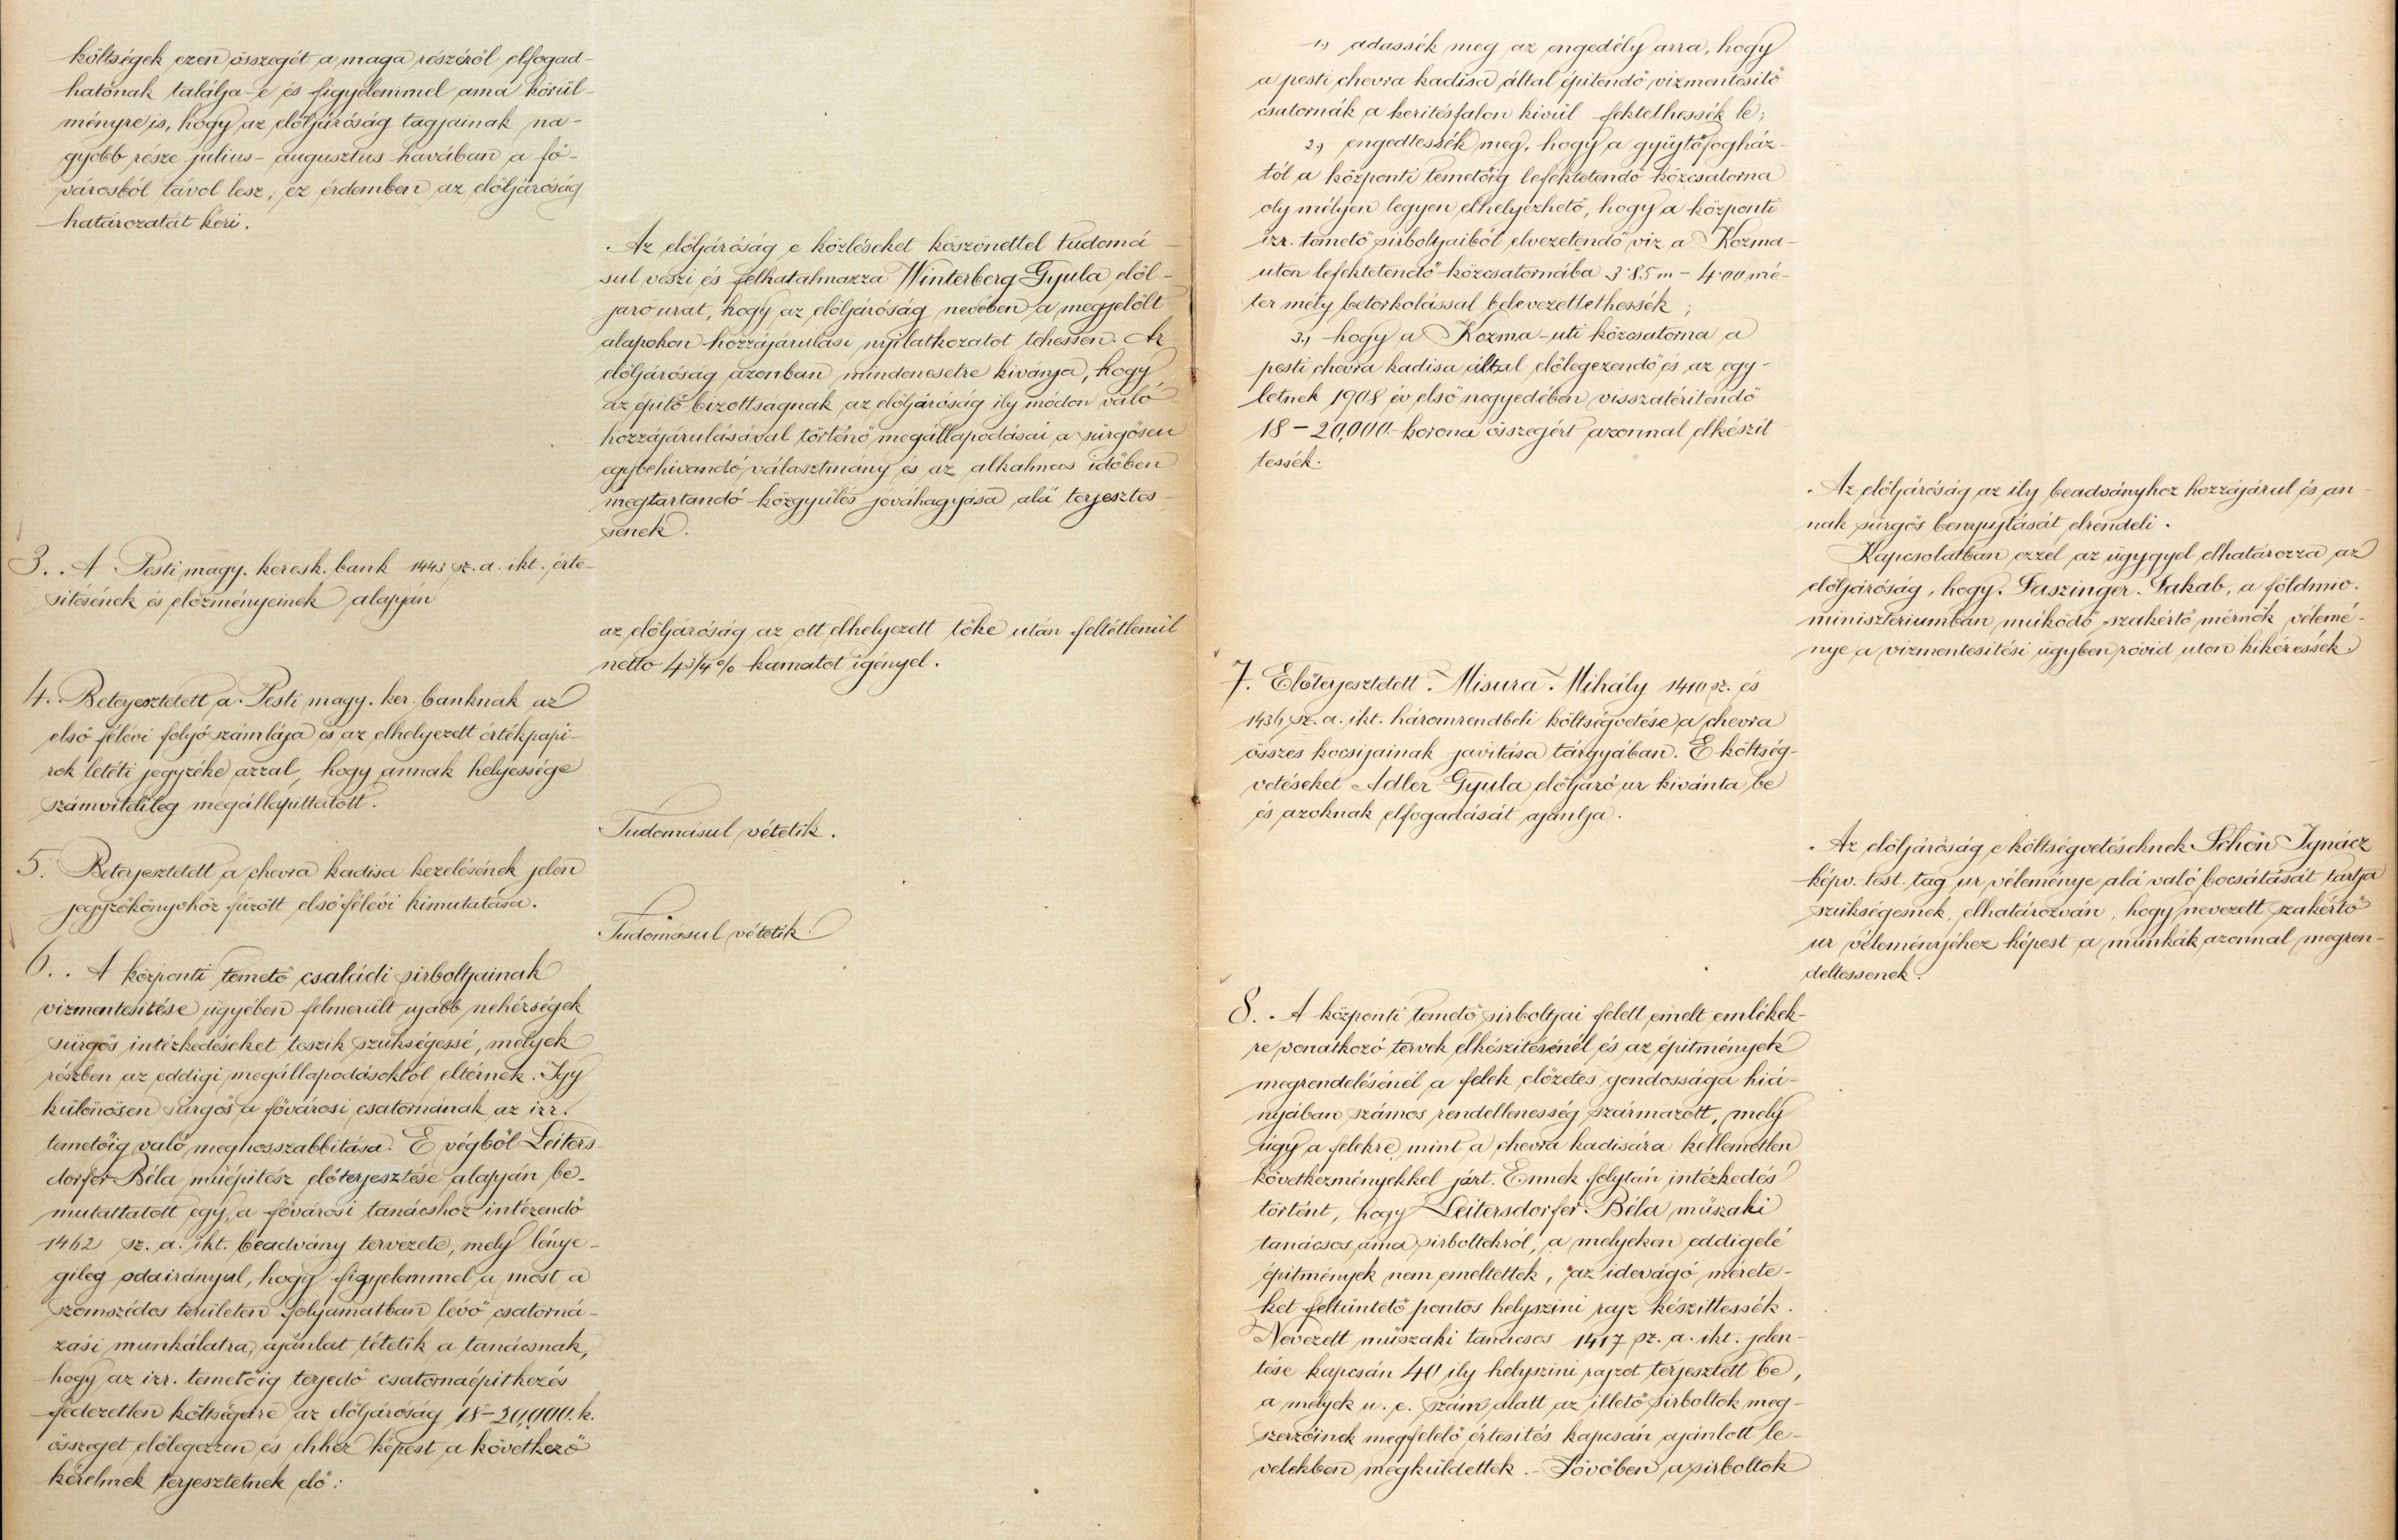 költségek ezen összegét a maga részéről elfogad-
hatónak találja-e és figyelemmel ama körül-
ményre is, hogy az előljáróság tagjainak na-
gyobb része julius-augusztus havában a fő-
városból távol lesz, ez érdemben az előljáróság
határozatát kéri.
Az előljáróság e közléseket köszönettel tudomá-
sul veszi és felhatalmazza Winterberg Gyula elől-
járó urat, hogy az előljáróság nevében a megjelölt
alapokon hozzájárulási nyilatkozatot tehessen. Az
előljáróság azonban mindenesetre kivánja, hogy
az épitő bizottságnak az előljáróság ily módon való
hozzájárulásával történő megállapodásai a sürgősen
egybehivandó választmány és az alkalmas időben
megtartandó közgyülés jóváhagyása alá terjesztes-
senek.
3. A Pesti magy. keresk. bank 1443 sz. a. ikt. érte-
sitésének és előzményeinek alapján
az előljáróság az ott elhelyezett tőke után feltétlenül
netto 4 3/4 % kamatot igényel.
4. Beterjesztetett a Pesti magy. ker. banknak az
első félévi folyó számlája és az elhelyezett értékpapi-
rok letéti jegyzéke azzal, hogy annak helyessége
számvitelileg megállapittatott.
Tudomásul vétetik.
5. Beterjesztetett a chevra kadisa kezelésének jelen
jegyzőkönyvhöz füzött első félévi kimutatása.
Tudomásul vétetik.
6. A központi temető családi sirboltjainak
vizmentesitése ügyében felmerült ujabb nehézségek
sürgős intézkedéseket teszik szükségessé, melyek
részben az eddigi megállapodásoktól eltérnek. Igy
különösen sürgős a fővárosi csatornának az izr.
temetőig való meghosszabbitása. E végből Leiters-
dorfer Béla müépitész előterjesztése alapján be-
mutattatott egy, a fővárosi tanácshoz intézendő
1462 sz. a. ikt. beadvány tervezete, mely lénye-
gileg odairányul, hogy figyelemmel a most a
szomszédos területen folyamatban lévő csatorná-
zási munkálatra, ajánlat tétetik a tanácsnak,
hogy az izr. temetőig terjedő csatornaépitkezés
fedezetlen költségeire az előljáróság 18-20,000. k.
összeget előlegezzen és ehhez képest a következő
kérelmek terjesztetnek elő:
1.) adassék meg az engedély arra, hogy
a pesti chevra kadisa által épitendő vizmentesitő
csatornák a keritésfalon kivül fektethessék le;
2.) engedtessék meg, hogy a gyüjtőfogház-
tól a központi temetőig lefektetendő közcsatorna
oly mélyen legyen elhelyezhető, hogy a központi
izr. temető sirboltjaiból elvezetendő viz a Kozma-
uton lefektetendő közcsatornába 3.85 m - 4.00 mé-
ter mély betorkolással belevezettethessék;
3.) hogy a Kozma-uti közcsatorna a
pesti chevra kadisa által előlegezendő és az egy-
letnek 1908 év első negyedében visszatéritendő
18-20,000.- korona összegért azonnal elkészit
tessék.
Az előljáróság az ily beadványhoz hozzájárul és an-
nak sürgős benyujtását elrendeli.
Kapcsolatban ezzel az ügygyel elhatározza az
előljáróság, hogy Faszinger Jakab, a földmiv.
miniszteriumban müködő szakértő mérnök vélemé-
nye a vizmentesitési ügyben rövid uton kikéressék.
7. Előterjesztetett Misura Mihály 1410 sz. és
sz. a. ikt. háromrendbeli költségvetése a chevra
összes kocsijainak javitása tárgyában. E költség-
vetéseket Adler Gyula előljáró ur kivánta be
és azoknak elfogadását ajánlja.
Az előljáróság e költségvetéseknek Schön Ignácz
képv. test. tag ur véleménye alá való bocsátását tartja
szükségesnek, elhatározván, hogy nevezett szakértő
ur véleményéhez képest a munkák azonnal megren-
deltessenek.
8. A központi temető sirboltjai felett emelt emlékek-
re vonatkozó tervek elkészitésénél és az épitmények
megrendelésénél a felek előzetes gondossága hiá-
nyában számos rendellenesség származott, mely
ugy a felekre, mint a chevra kadisára kellemetlen
következményekkel járt. Ennek folytán intézkedés
történt, hogy Leitersdorfer Béla müszaki
tanácsos ama sirboltokról, a melyeken eddigelé
épitmények nem emeltettek, az idevágó mérete-
ket feltüntető pontos helyszini rajz készittessék.
Nevezett müszaki tanácsos 1417 sz. a. ikt. jelen-
tése kapcsán 40 ily helyszini rajzot terjesztett be,
a melyek u. e. szám alatt az illető sirboltok meg-
szerzőinek megfelelő értesités kapcsán ajánlott le-
velekben megküldettek. - Jövőben a sirboltok